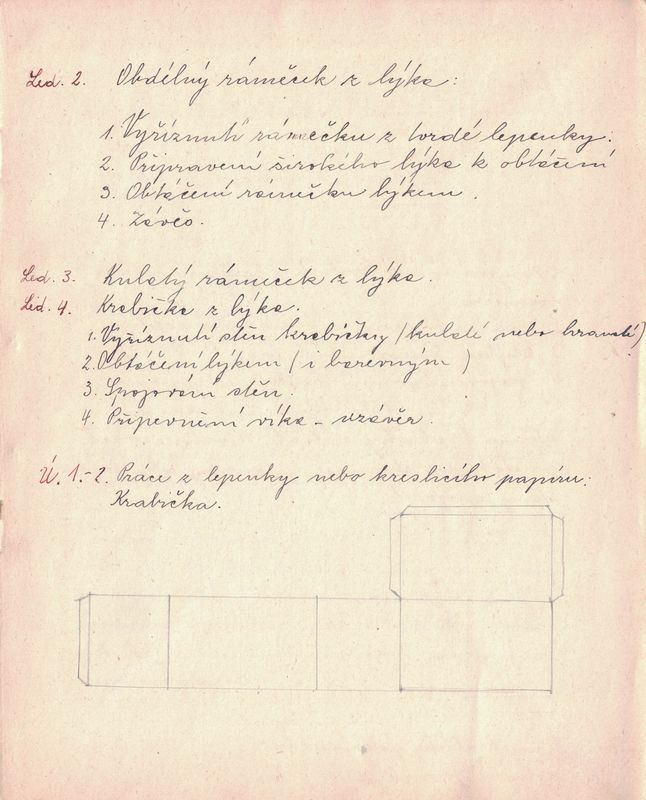 Led. 2. Obdélný rámeček z lýka:
1. Vyříznutí rámečku z tvrdé lepenky.
2. Připravení širokého lýka k obtáčení
3. Obtáčení rámečku lýkem.
4. Závěs.
Led. 3. Kulatý rámeček z lýka.
Led. 4. Krabička z lýka.
1. Vyříznutí stěn krabičky (kulaté nebo hranaté)
2. Obtáčení lýkem (i barevným)
3. Spojování stěn.
4. Připevnění víka – uzávěr.
Ú. 1.-2. Práce z lepenky nebo kreslicího papíru:
Krabička.